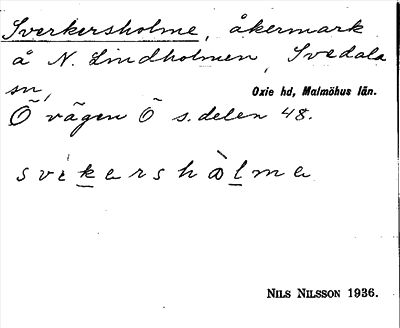 Sverkersholme, åkermark
å N. Lindholmen, Svedala
sn,
Oxie hd, Malmöhus län.
Ö vägen Ö s. delen 48.
svekersholme
NILS NILSSON 1936.